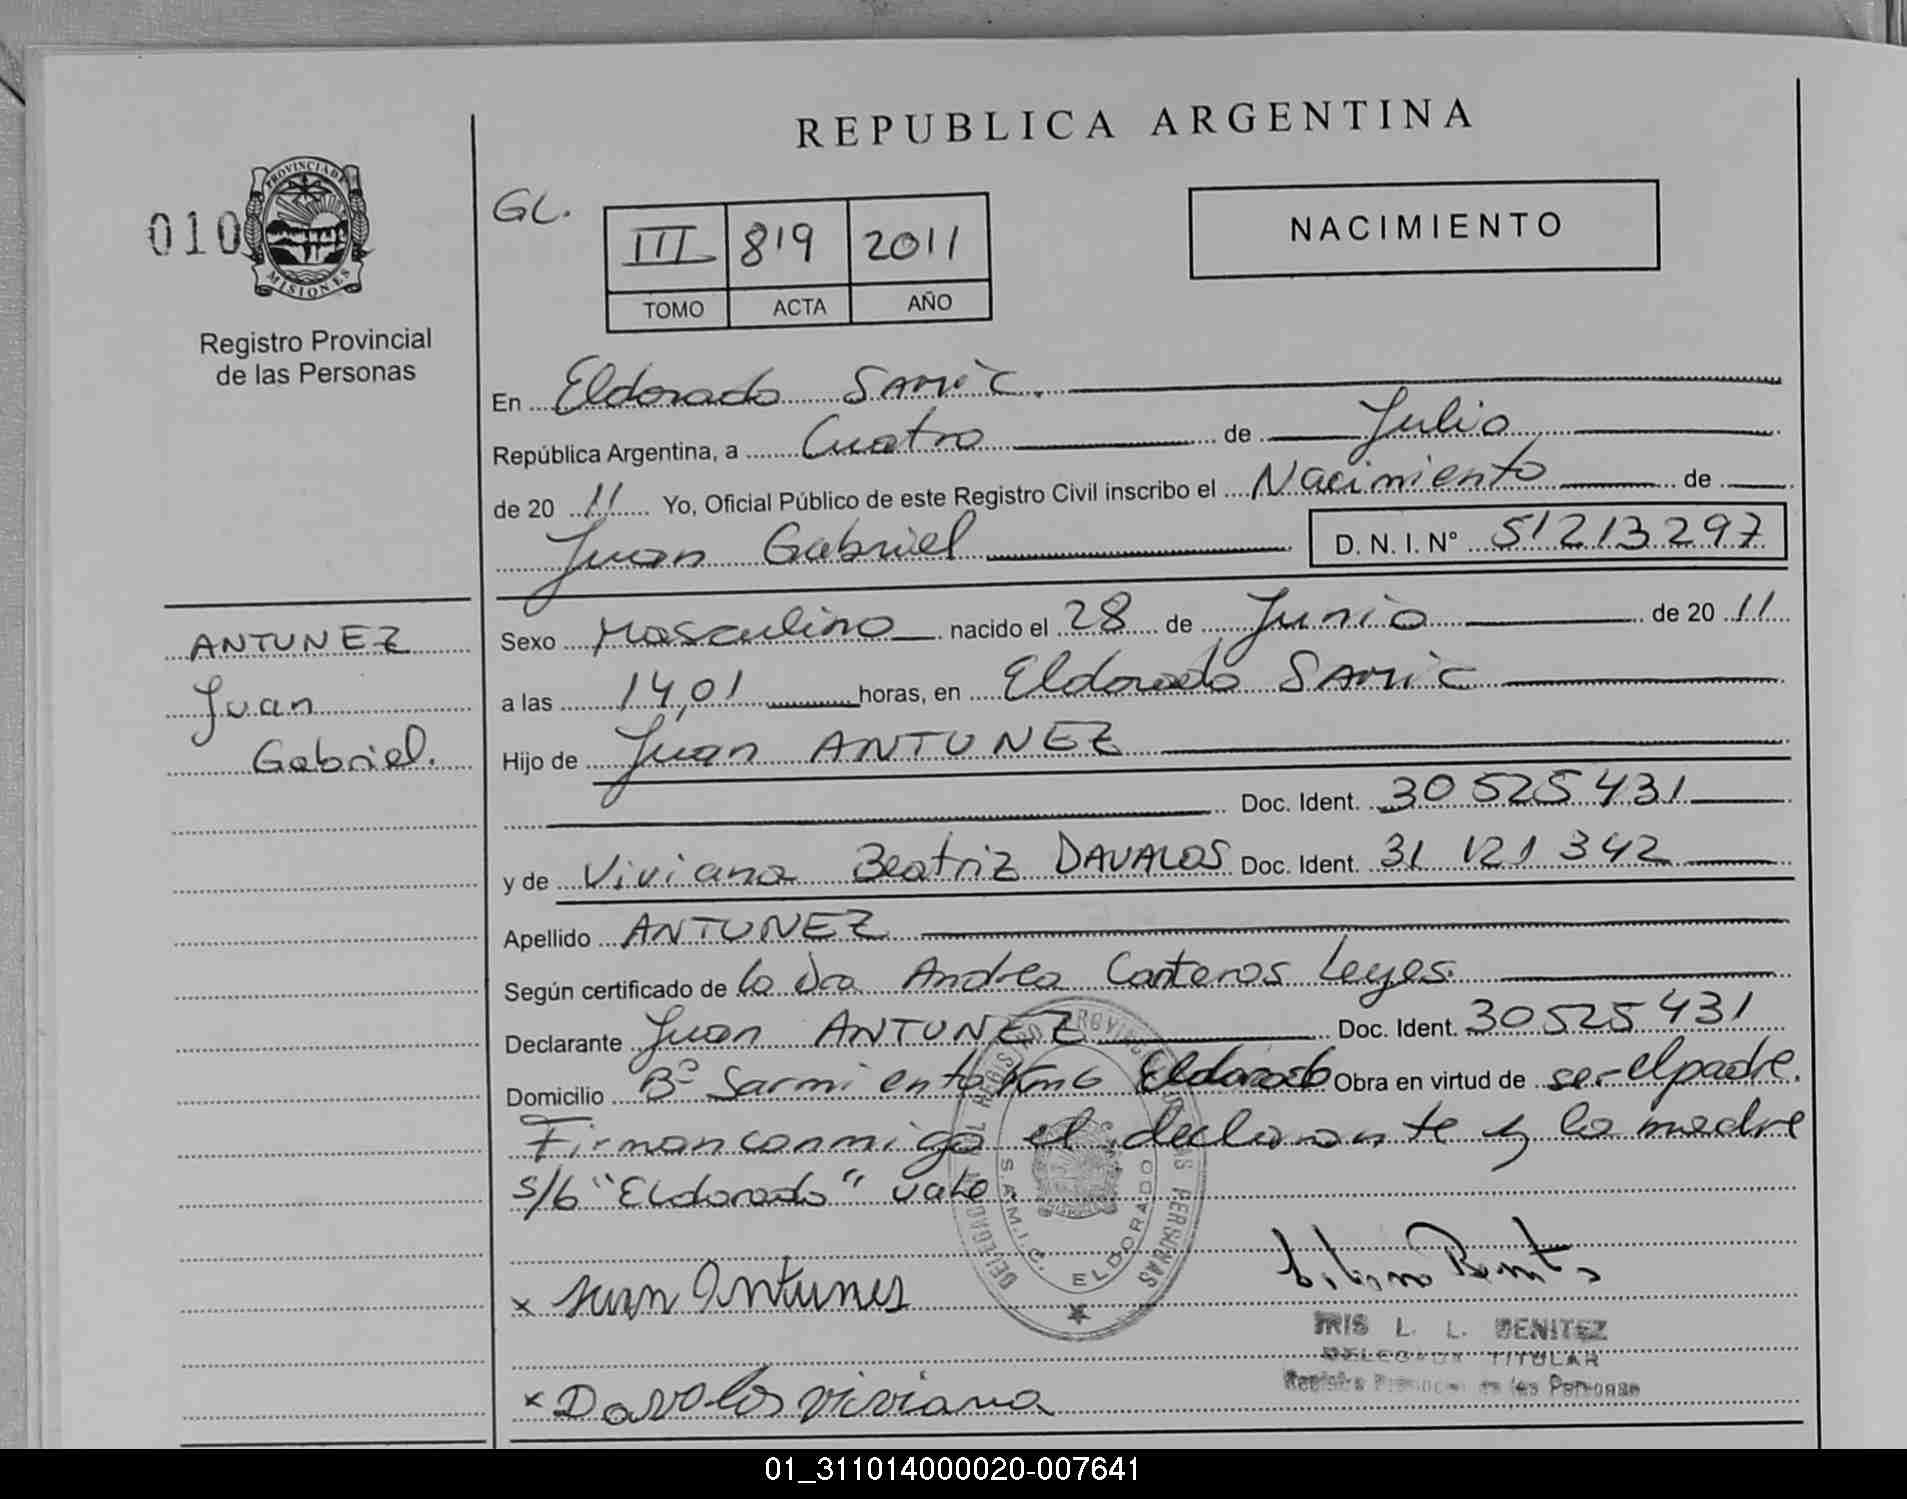 REPUBLICA ARGENTINA
010
PROVINCIA DE
MISIONES
Registro Provincial
de las Personas
GL.
III 819 2011
TOMO ACTA AÑO
NACIMIENTO
En Eldorado SAMIC.
República Argentina, a Cuatro de Julio
de 20 11 Yo, Oficial Público de este Registro Civil inscribo el Nacimiento de
Juan Gabriel D. N. I. N° 51213297
ANTUNEZ
Juan
Gabriel.
Sexo Masculino nacido el 28 de Junio de 20 11
a las 14,01 horas, en Eldorado SAMIC
Hijo de Juan ANTUNEZ
Doc. Ident. 30525431
y de Viviana Beatriz DAVALOS Doc. Ident. 31 121 342
Apellido ANTUNEZ
Según certificado de la Dra Andrea Canteros Leyes.
Declarante Juan ANTUNEZ Doc. Ident. 30525431
Domicilio Bº Sarmiento Km6 Eldorado Obra en virtud de ser el padre.
Firman conmigo el declarante y la madre
s/b "Eldorado" vale
S.A.M.I.C. ELDORADO
x Juan Antunes
IRIS L. L. BENITEZ
TITULAR
x Davalos viviana
01_311014000020-007641